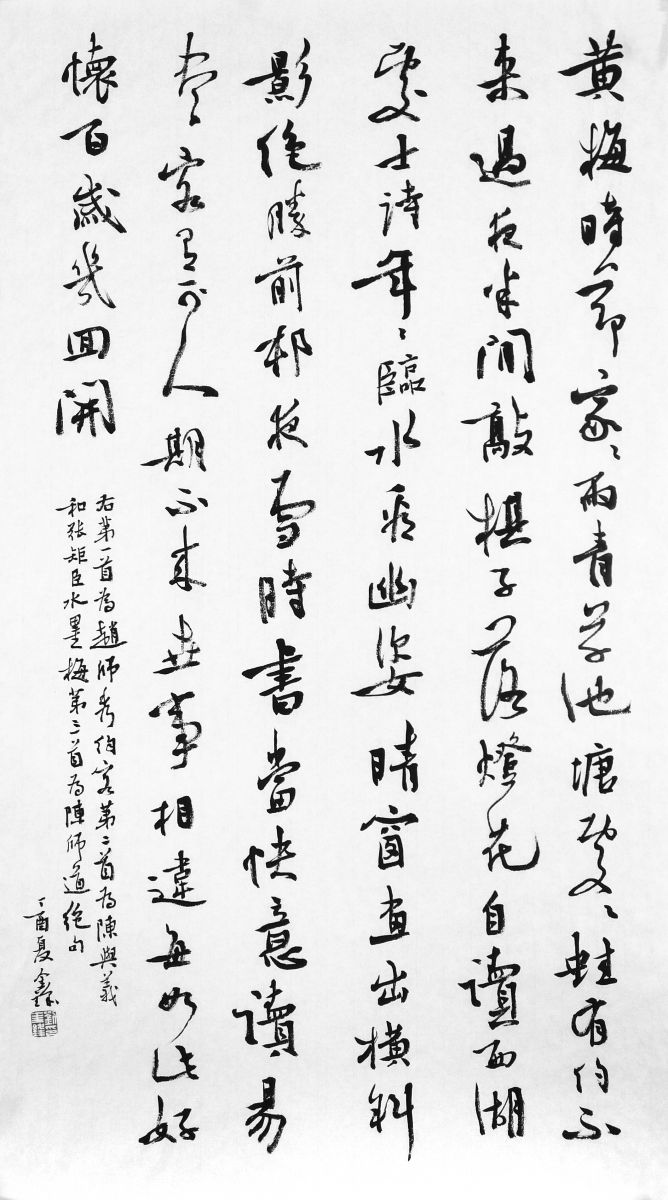 黄梅時節家々雨青草池塘處々蛙有約不
来過夜半閒敲棋子落燈花自讀西湖
處士詩年々臨水看幽姿晴窗畫出橫斜
影絶勝前邨夜雪時書當快意讀易
盡客有可人期不来世事相違每如此好
懷百歲幾回開
右第一首為趙師秀約客第二首為陳與義
和張矩臣水墨梅第三首為陳師道絶句
丁酉夏